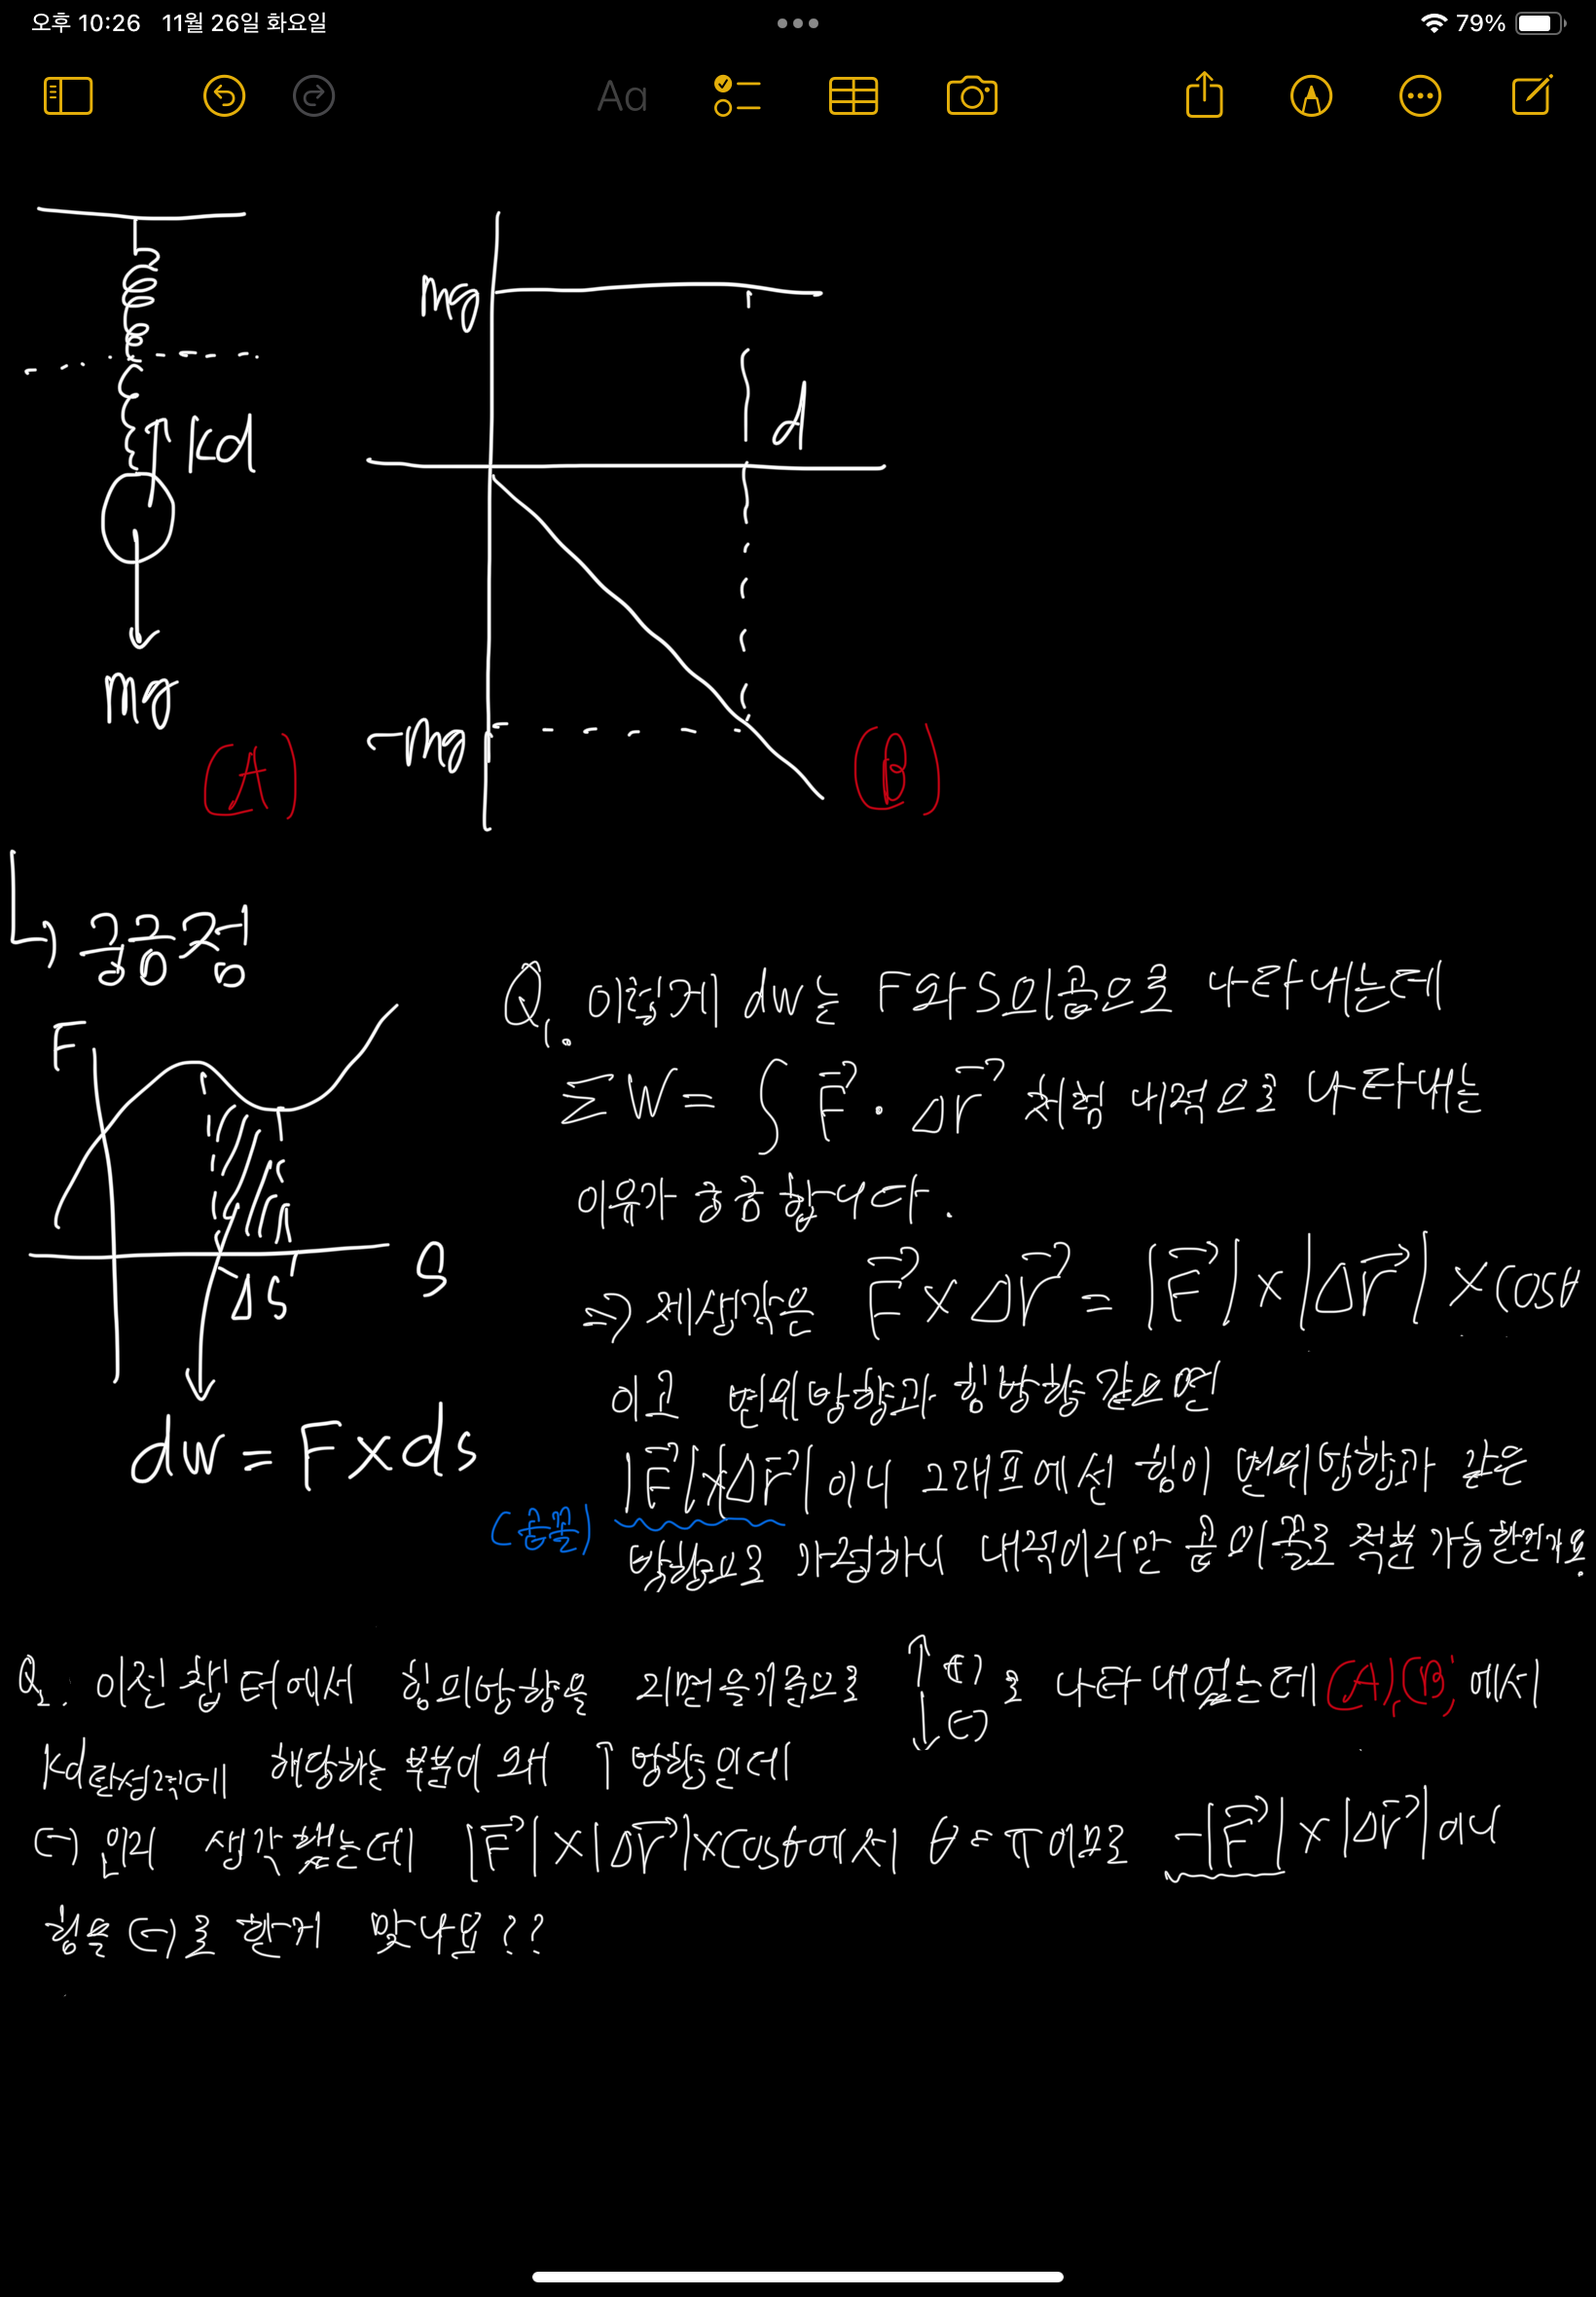 오후 10:26 11월 26일 화요일
79%
Aa
kd
mg
(A)
mg
d
-mg
(B)
↳ 궁금점
F
S
ΔS
dw = F×ds
Q1. 이렇게 dw는 F와 S의 곱으로 나타내는데
ΣW = ∫ F⃗ · Δr⃗ 처럼 내적으로 나타내는
이유가 궁금합니다.
⇒ 제생각은 F⃗ × Δr⃗ = |F⃗| × |Δr⃗| × cosθ
이고 변위방향과 힘방향 같으면
|F⃗|×|Δr⃗| 이니 그래프에선 힘이 변위방향과 같은
(곱꼴)
방향으로 가정하니 내적이지만 곱의꼴로 적분 가능한건가요?
Q2. 이전 챕터에서 힘의방향을 지면을기준으로 ↑(+) ↓(-) 로 나타내었는데 (A),(B)에서
kd탄성력에 해당하는 부분이 왜 ↑방향인데
(-)인지 생각했는데 |F⃗|×|Δr⃗|×cosθ에서 θ=π이므로 -|F⃗|×|Δr⃗|이니
힘을 (-)로 한거 맞나요??